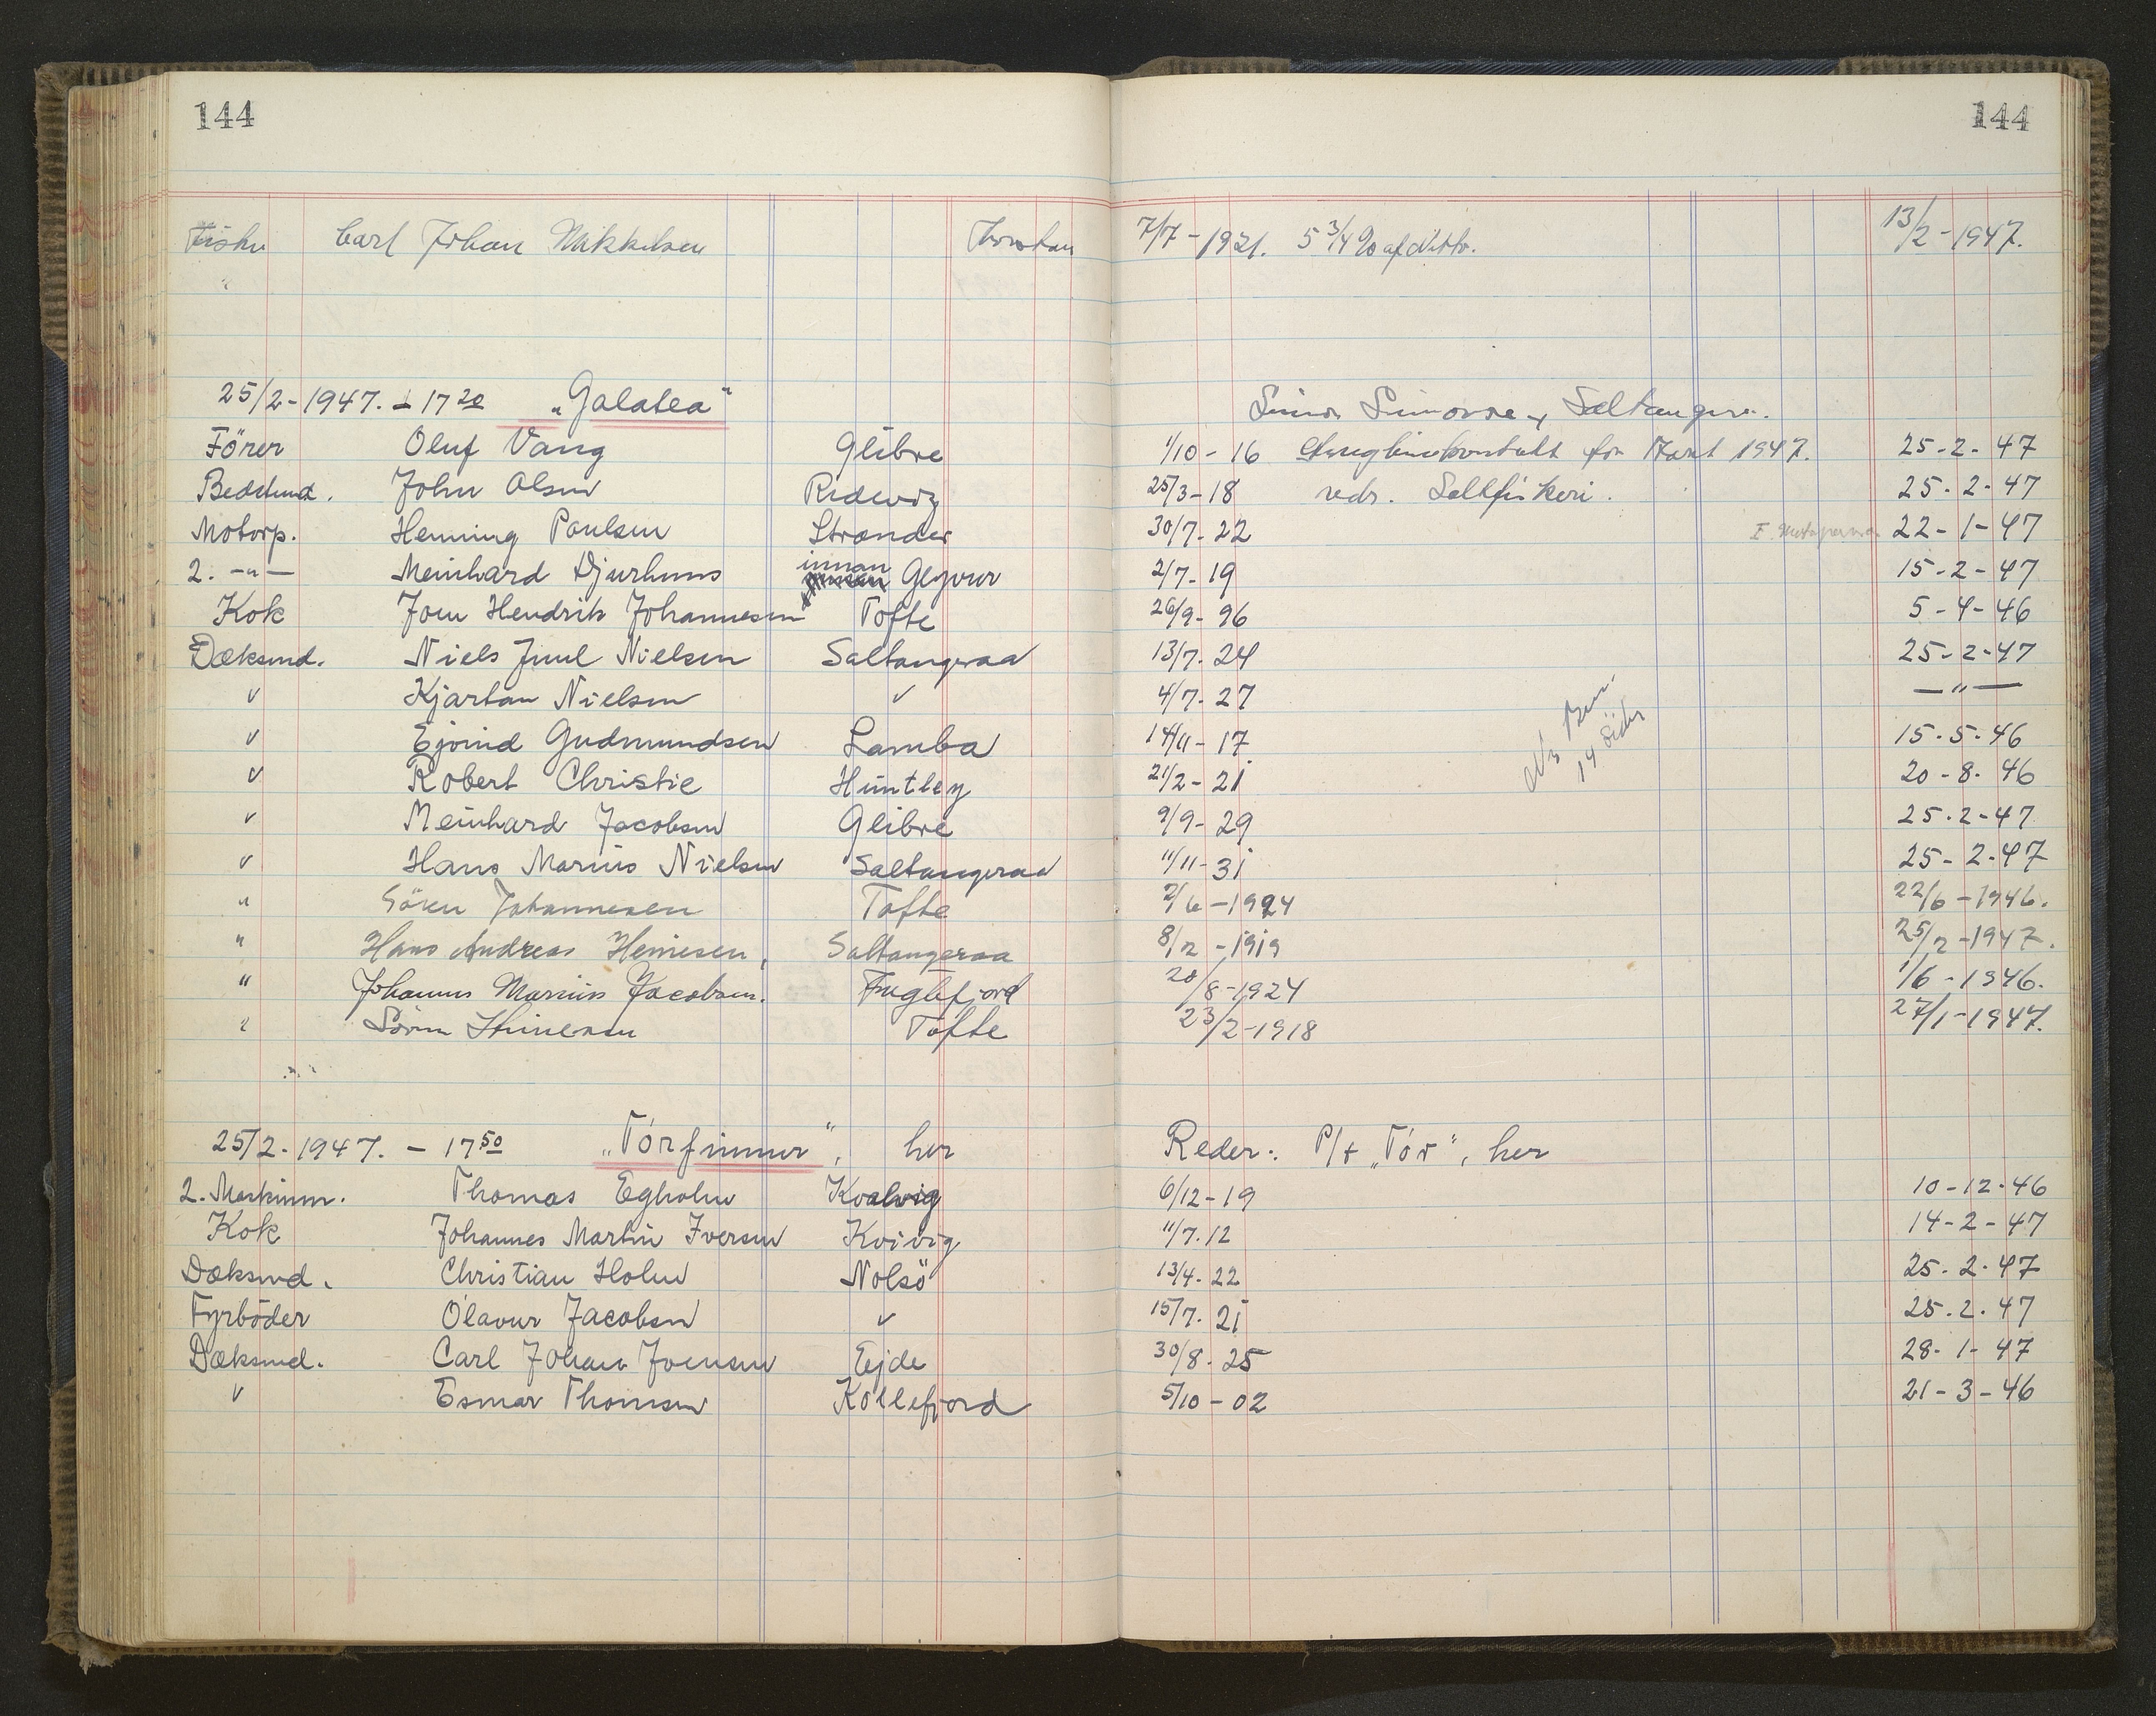 144 144
Carl Johan Mikkelsen 7/7-1921. 5 3/4 % af Netto. 13/2-1947.
25/2-1947. - 17 20 "Galatea"
Förer Oluf Vang Glibre 1/10-16 for 1947. 25-2-47
John Olsen Redewig 25/3-18 vedr. Saltfiskeri. 25-2-47
Motorp. Henning Poulsen Strænder 30/7-22 22-1-47
2. -"- Meinhard Djurhuus innan Glyvur 2/7-19 15-2-47
Kok Joen Hendrik Johannesen Tofte 26/9-96 5-4-46
Dæksmd. Niels Juul Nielsen Saltangeraa 13/7-24 25-2-47
" Kjartan Nielsen " 4/7-27 -"-
" Ejvind Gudmundsen Lamba 14/11-17 15-5-46
" Robert Christie Huntley 21/2-21 20-8-46
" Meinhard Jacobsen Glibre 9/9-29 25-2-47
" Hans Marius Nielsen Saltangeraa 11/11-31 25-2-47
" Sören Johannesen Tofte 2/6-1924 22/6-1946.
" Hans Andreas Heinesen, Saltangeraa 8/2-1919 25/2-1947.
" Johannes Marius Jacobsen. Fuglefjord 20/8-1924 1/6-1946.
" Sören Tofte 23/2-1918 27/1-1947.
25/2-1947. - 17 50 "Tórfinnur", her Reder: P/f "Tór", her
2. Maskinm. Thomas Egholm Kvalvig 6/12-19 10-12-46
Kok Johannes Martin Iversen Kvivig 11/7.12 14-2-47
Dæksmd. Christian Holm Nolsö 13/4.22 25-2-47
Fyrböder Ólavur Jacobsen " 15/7.21 25.2.47
Dæksmd. Carl Johan Joensen Ejde 30/8.25 28-1-47
" Esmar Thomsen Kollefjord 5/10-02 21-3-46